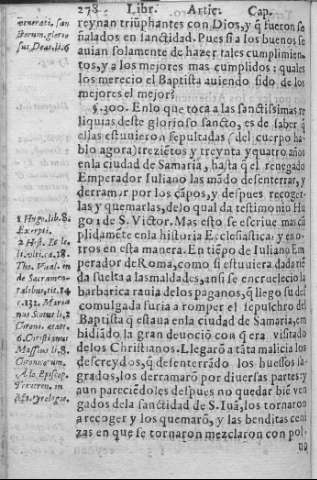 278 Libr. Artic. Cap.
reynan triũphantes con Dios, y q̃ fueron se
ñalados en sanctidad. Pues si a los buenos se
auian solamente de hazer tales cumplimien
tos, y a los mejores mas cumplidos: quales
los merecio el Baptista auiendo sido de los
mejores el mejor?
§.300. En lo que toca a las sanctissimas re
liquias deste glorioso sancto, es de saber q̃
ellas estuuieron sepultadas (del cuerpo ha
blo agora) trezietos y treynta y quatro años
en la ciudad de Samaria, hasta q̃ el renegado
Emperador Iuliano las mãdo desenterrar, y
derramar por los cãpos, y despues recoger
las y quemarlas, de lo qual da testimonio Hu
go 1 de S. Victor. Mas esto se escriue mas cũ
plidamẽte en la historia Ecclesiastica 2 y en o
tros en esta manera. En tiẽpo de Iuliano Em
perador de Roma, como si estuuiera dada riẽ
da suelta a las maldades, ansi se encruelecio la
barbarica rauia de los paganos, q̃ luego su des
comulgada furia a romper el sepulchro del
Baptista q̃ estaua en la ciudad de Samaria, em
bidiãdo la gran deuociõ con q̃ era visitado
de los Christianos. Llegarõ a tãta malicia los
descreydos, q̃ desenterrãdo los huessos sa
grados, los derramarõ por diuersas partes: y
aun pareciẽdoles despues no quedar biẽ ven
gados de la sanctidad de S. Iuã, los tornaron
a recoger y los quemarõ, y las benditas ceni
zas en que se tornaron mezclaron con pol-
uo
uenerati, san
ctorum, glorio
sus, Deut. li. 6
1 Hugo, lib. 8.
Excerpti.
2 Hist. Eccle
li. vlti. ca. 28.
Tho. Vual. in
de Sacramen
talibus, tit. 14
c. 132. Maria
nus Scotus li. 2
Chroni. etate
6. Christianus
Massæus li. 8.
Chronicorum.